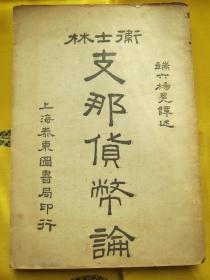 衛士林
端六楊冕譯述
支那貨幣論
上海泰東圖書局印行